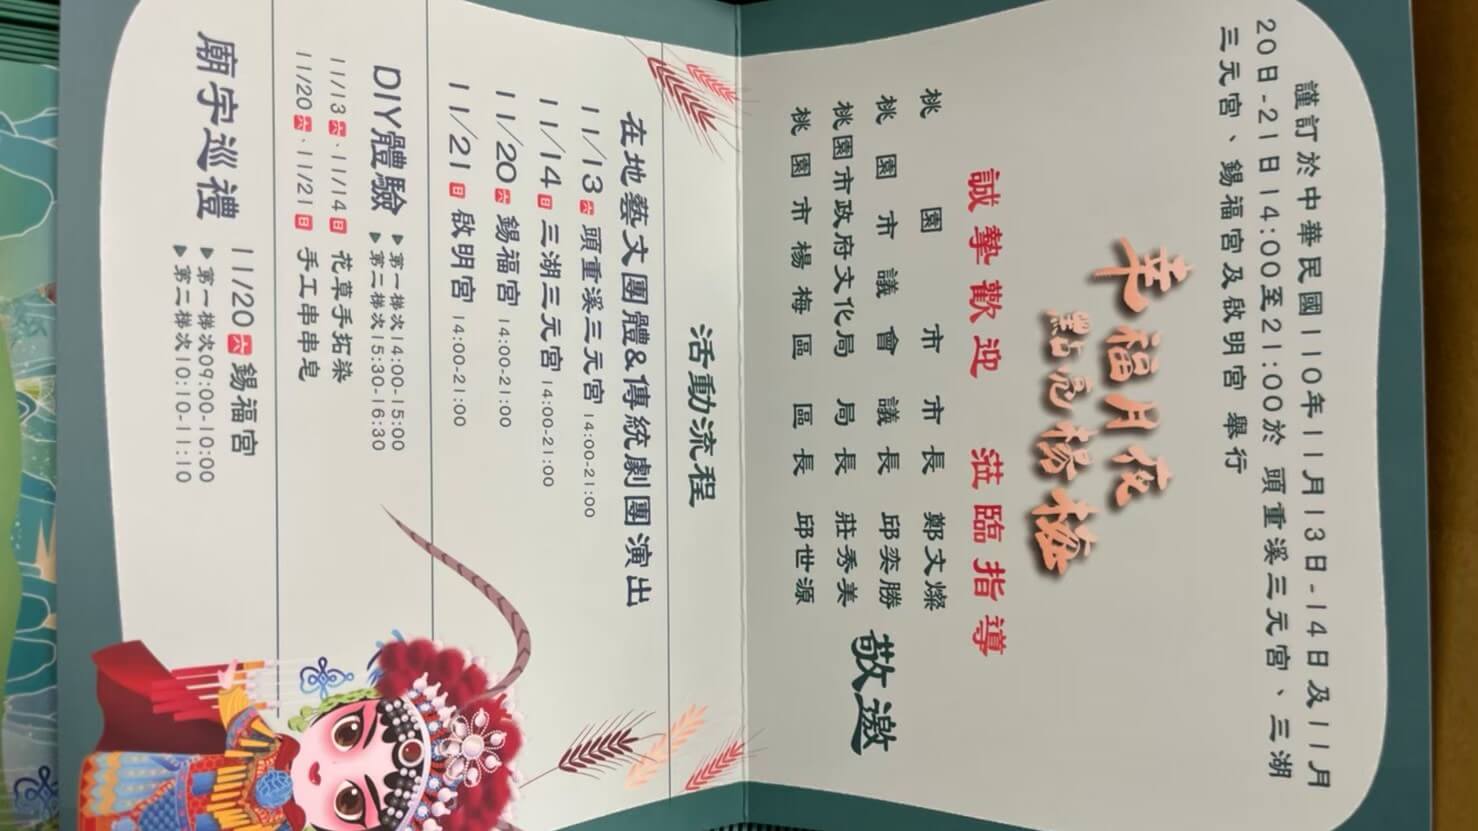 謹訂於中華民國110年11月13日-14日及11月
20日-21日14:00至21:00於 頭重溪三元宮、三湖
三元宮、錫福宮及啟明宮 舉行
幸福月夜
點亮楊梅
誠摯歡迎 蒞臨指導
桃園市市長 鄭文燦
桃園市議會議長 邱奕勝
桃園市政府文化局局長 莊秀美
桃園市楊梅區區長 邱世源
敬邀
活動流程
在地藝文團體&傳統劇團演出
11/13 六 頭重溪三元宮 14:00-21:00
11/14 日 三湖三元宮 14:00-21:00
11/20 六 錫福宮 14:00-21:00
11/21 日 啟明宮 14:00-21:00
DIY體驗 ▶第一梯次14:00-15:00
▶第二梯次15:30-16:30
11/13 六、11/14 日 花草手拓染
11/20 六、11/21 日 手工串串皂
廟宇巡禮 11/20 六 錫福宮
▶第一梯次09:00-10:00
▶第二梯次10:10-11:10